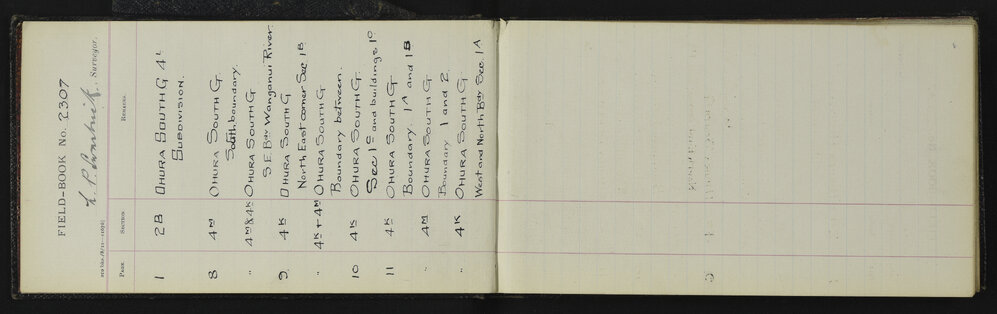 FIELD-BOOK No. 2307
Surveyor.
PAGE. SECTION. REMARKS.
1 2B OHURA SOUTH G 4L
SUBDIVISION.
8 4M OHURA SOUTH G
South boundary.
" 4M & 4K OHURA SOUTH G
S.E. Bdy Wanganui River.
9 4K OHURA SOUTH G
North East corner Sec. 1B
" 4K + 4M OHURA SOUTH G
Boundary between.
10 4K OHURA SOUTH G.
Sec 1C and buildings 1C
11 4K OHURA SOUTH G
Boundary. 1A and 1B
" 4M OHURA SOUTH G
Boundary 1 and 2.
" 4K OHURA SOUTH G
West and North Bdy Sec. 1A